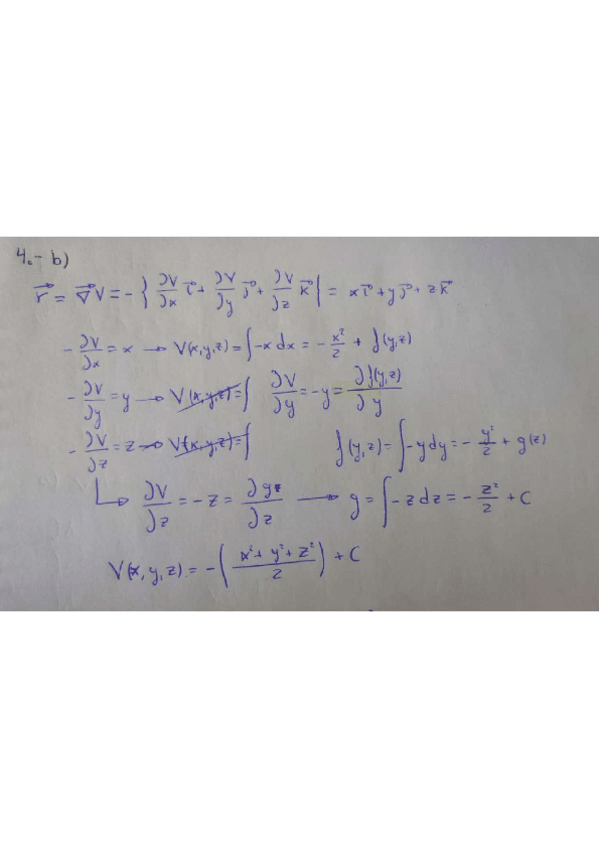 4.- b)
r⃗ = ∇⃗V = -{ ∂V/∂x i⃗ + ∂V/∂y j⃗ + ∂V/∂z k⃗ } = x i⃗ + y j⃗ + z k⃗
- ∂V/∂x = x → V(x,y,z) = ∫-x dx = - x²/2 + f(y,z)
- ∂V/∂y = y → V(x,y,z) = ∫ ∂V/∂y = -y = ∂f(y,z)/∂y
- ∂V/∂z = z → V(x,y,z) = ∫ f(y,z) = ∫-y dy = - y²/2 + g(z)
↳ ∂V/∂z = -z = ∂g/∂z → g = ∫-z dz = - z²/2 + C
V(x,y,z) = -( x²+y²+z² / 2 ) + C